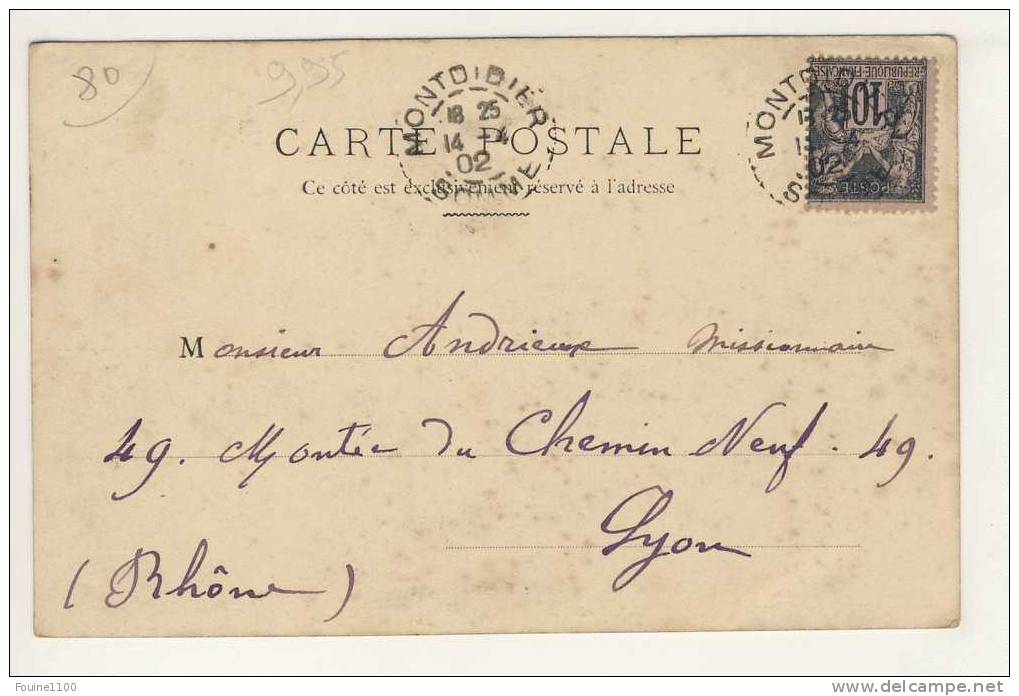 80
9,95
MONTDIDIER
18 25
14
02
SOMME
MONTD
02
S
REPUBLIQUE FRANÇAISE
10
POSTE
CARTE POSTALE
Ce côté est exclusivement réservé à l'adresse
Monsieur Andrieux Missionnaire
49. Montée du Chemin Neuf. 49.
Lyon
(Rhône)
Foune1100
www.delcampe.net